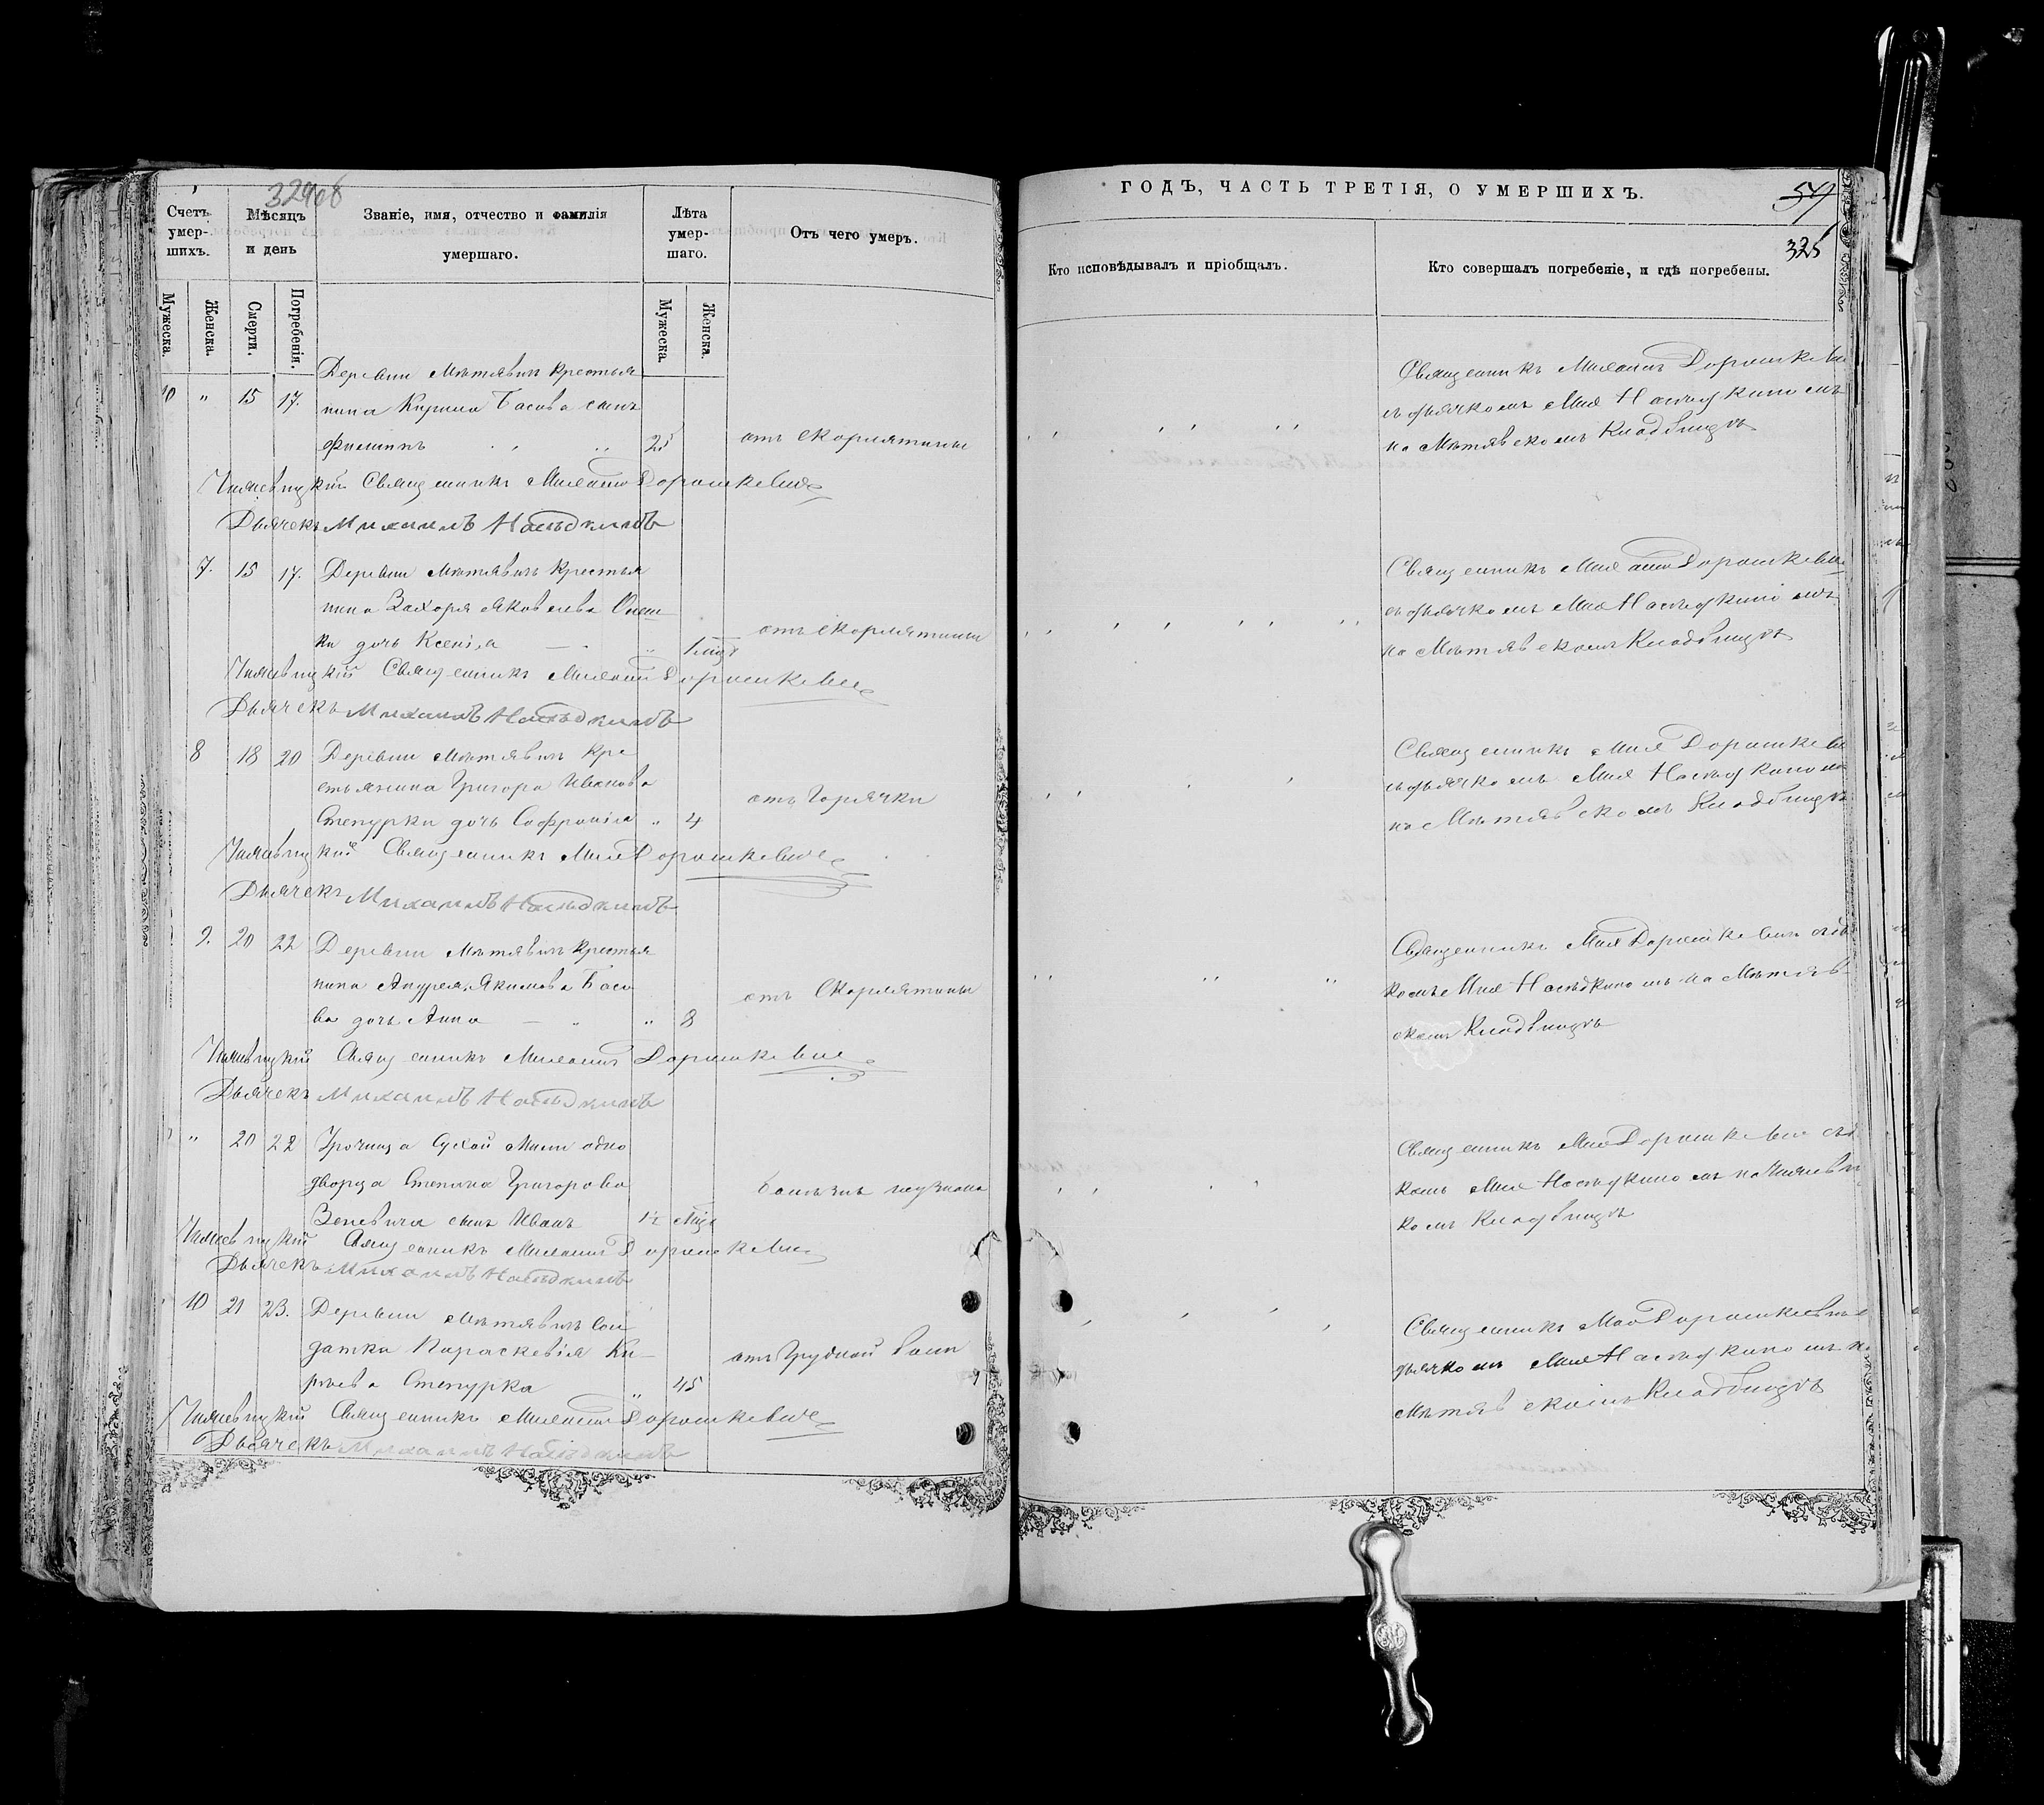 32908
Счетъ умер-шихъ.
Мѣсяцъ и день
Званіе, имя, отчество и фамилія умершаго.
Лѣта умер-шаго.
Отъ чего умеръ.
Мужеска.
Женска.
Смерти.
Погребенія.
Мужеска.
Женска.
Деревни Мѣтявичъ крестья
10 " 15 17. нина Кирила Басова сынъ
Филипъ 25 отъ скорлятины
Священникъ Дорошкевичъ
Дьячекъ Михаилъ Наслѣдкинъ
7. 15 17. Деревни Мѣтявичъ крестья
нина Захоря Яковлева
ки дочь Ксенія " отъ скорлятины
Священникъ Дорошкевичъ
Дьячекъ Михаилъ Наслѣдкинъ
8 18 20 Деревни Мѣтявичъ кре
стьянина Григора Иванова
Степурки дочь Софронія " 4 отъ горячки
Священникъ Дорошкевичъ
Дьячекъ Михаилъ Наслѣдкинъ
9. 20 22 Деревни Мѣтявичъ крестья
нина Андрея Якимова Басо
ва дочь Анна " 8 отъ скорлятины
Священникъ Дорошкевичъ
Дьячекъ Михаилъ Наслѣдкинъ
" 20 22 Урочища Сухой Мили одно
дворца Степана Григорова
Зеневича сынъ Иванъ болѣзнь
Священникъ Дорошкевичъ
Дьячекъ Михаилъ Наслѣдкинъ
10 21 23. Деревни Мѣтявичъ сол
датка Параскевія Ки
рѣева Степурка " 45 отъ грудной боли
Священникъ Дорошкевичъ
Дьячекъ Михаилъ Наслѣдкинъ
ГОДЪ, ЧАСТЬ ТРЕТІЯ, О УМЕРШИХЪ.
54
325
Кто исповѣдывалъ и пріобщалъ.
Кто совершалъ погребеніе, и гдѣ погребены.
Священникъ Дорошкевичъ
съ дьячкомъ Мих Наслѣдкиномъ
на Мѣтявскомъ кладбищѣ
Священникъ Дорошкевичъ
съ дьячкомъ Мих Наслѣдкиномъ
на Мѣтявскомъ кладбищѣ
Священникъ Дорошкевичъ
съ дьячкомъ Мих Наслѣдкиномъ
на Мѣтявскомъ кладбищѣ
Священникъ Дорошкевичъ
комъ Мих Наслѣдкиномъ на Мѣтяв
скомъ кладбищѣ
Священникъ Дорошкевичъ
комъ Мих Наслѣдкиномъ на
комъ кладбищѣ
Священникъ Дорошкевичъ
дьячкомъ Мих Наслѣдкиномъ на
Мѣтявскомъ кладбищѣ